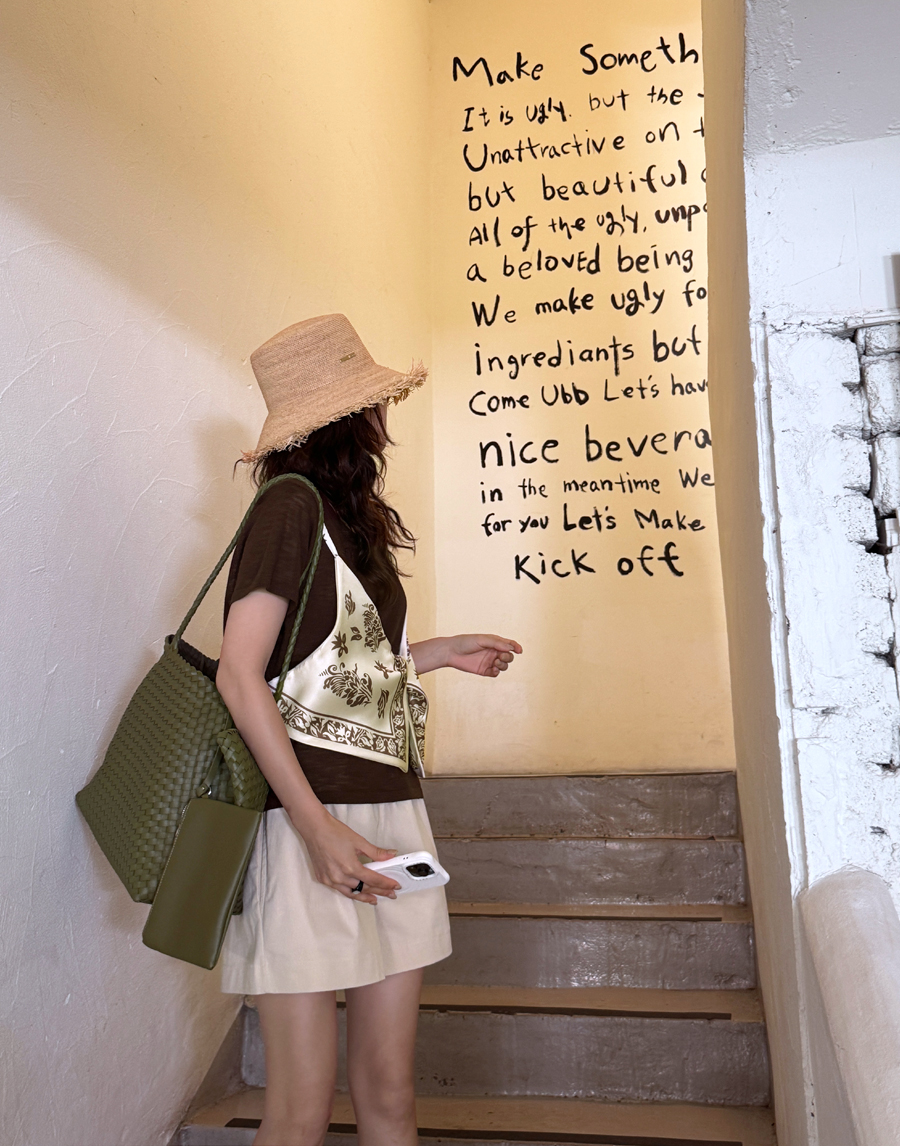 Make Someth
It is ugly. but the
Unattractive on t
but beautiful
All of the ugly, unp
a bElovEd being
We make ugly fo
ingrediants but
Come Ubb Let's hav
nice bevera
in the meantime We
for you Let's Make
Kick off